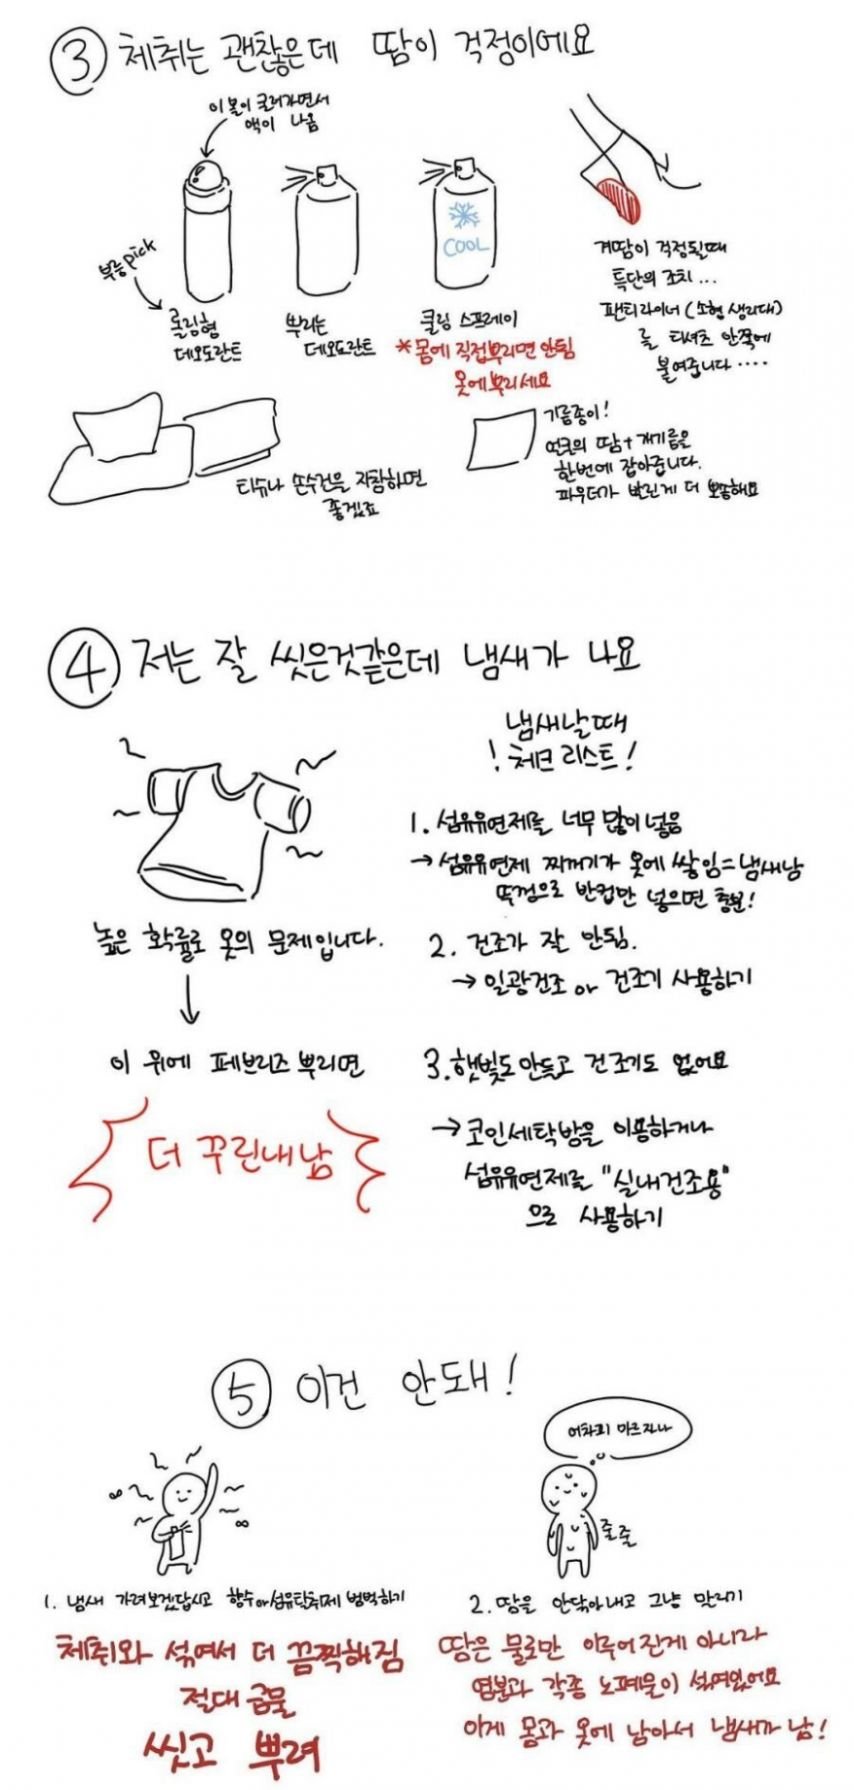 ③ 체취는 괜찮은데 땀이 걱정이에요
이 볼이 굴러가면서
액이 나옴
부릉pick
롤링형
데오도란트
뿌리는
데오도란트
COOL
쿨링 스프레이
*몸에 직접뿌리면 안됨
옷에뿌리세요
겨땀이 걱정될때
특단의 조치...
팬티라이너(소형 생리대)
를 티셔츠 안쪽에
붙여줍니다....
티슈나 손수건을 지참하면
좋겠죠
기름종이!
얼굴의 땀+개기름을
한번에 잡아줍니다.
파우더가 발린게 더 뽀송해요
④ 저는 잘 씻은것같은데 냄새가 나요
높은 확률로 옷의 문제입니다.
이 위에 페브리즈 뿌리면
더 꾸린내남
냄새날때
!체크리스트!
1. 섬유유연제를 너무 많이 넣음
→섬유유연제 찌꺼기가 옷에 쌓임=냄새남
뚜껑으로 반컵만 넣으면 충분!
2. 건조가 잘 안됨.
→일광건조 or 건조기 사용하기
3.햇빛도 안들고 건조기도 없어요
→코인세탁방을 이용하거나
섬유유연제를 "실내건조용"
으로 사용하기
⑤ 이건 안돼!
1. 냄새 가려보겠답시고 향수or섬유탈취제 범벅하기
체취와 섞여서 더 끔찍해짐
절대금물
씻고 뿌려
어차피 마르자나
줄줄
2. 땀을 안닦아내고 그냥 말리기
땀은 물로만 이루어진게 아니라
염분과 각종 노폐물이 섞여있어요
이게 몸과 옷에 남아서 냄새가 남!